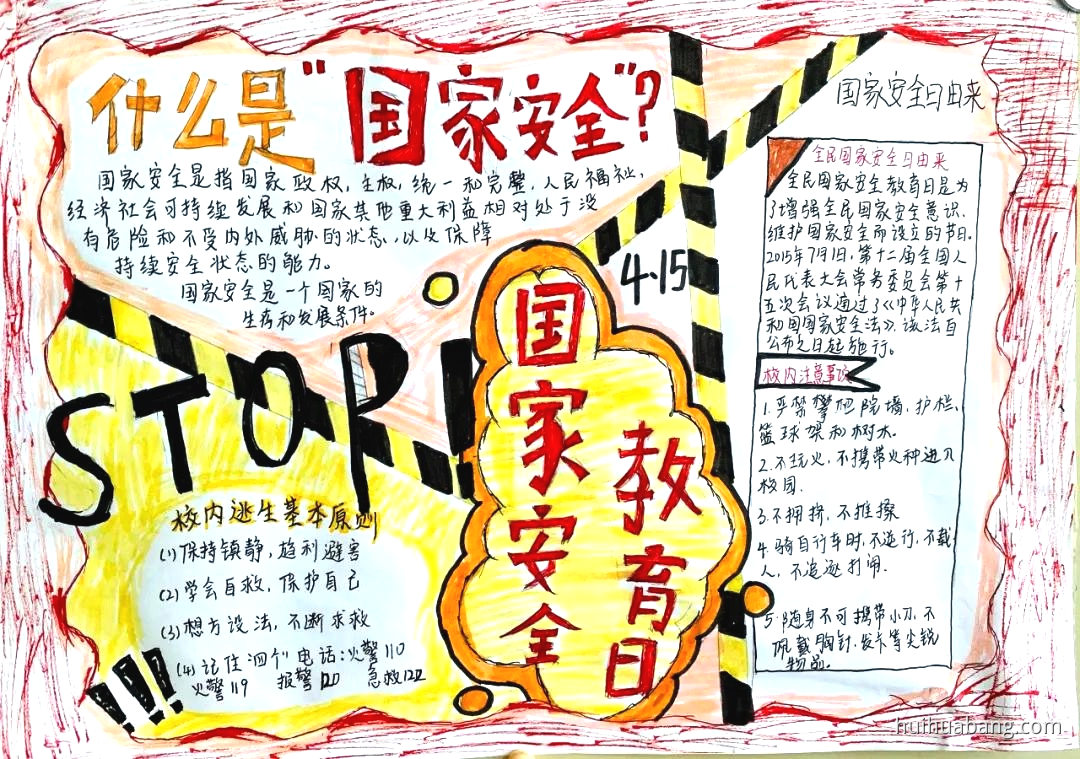 什么是"国家安全"?
国家安全是指国家政权,主权,统一和完整,人民福祉,
经济社会可持续发展和国家其他重大利益相对处于没
有危险和不受内外威胁的状态,以及保障
持续安全状态的能力。
国家安全是一个国家的
生存和发展条件。
STOP!
校内逃生基本原则
(1)保持镇静,趋利避害
(2)学会自救,保护自己
(3)想方设法,不断求救
(4)记住四个电话:火警110
火警119 报警120 急救122
!!!
4·15
国家安全
教育日
国家安全日由来
全民国家安全日由来
全民国家安全教育日是为
了增强全民国家安全意识,
维护国家安全而设立的节日。
2015年7月1日,第十二届全国人
民代表大会常务委员会第十
五次会议通过了《中华人民共
和国国家安全法》。该法自
公布之日起施行。
校内注意事项
1.严禁攀爬院墙、护栏、
篮球架和树木。
2.不玩火,不携带火种进入
校园.
3.不拥挤,不推搡
4.骑自行车时,不逆行,不载
人,不追逐打闹.
5.随身不可携带小刀,不
佩戴胸针、发卡等尖锐
物品。
huihuabang.com